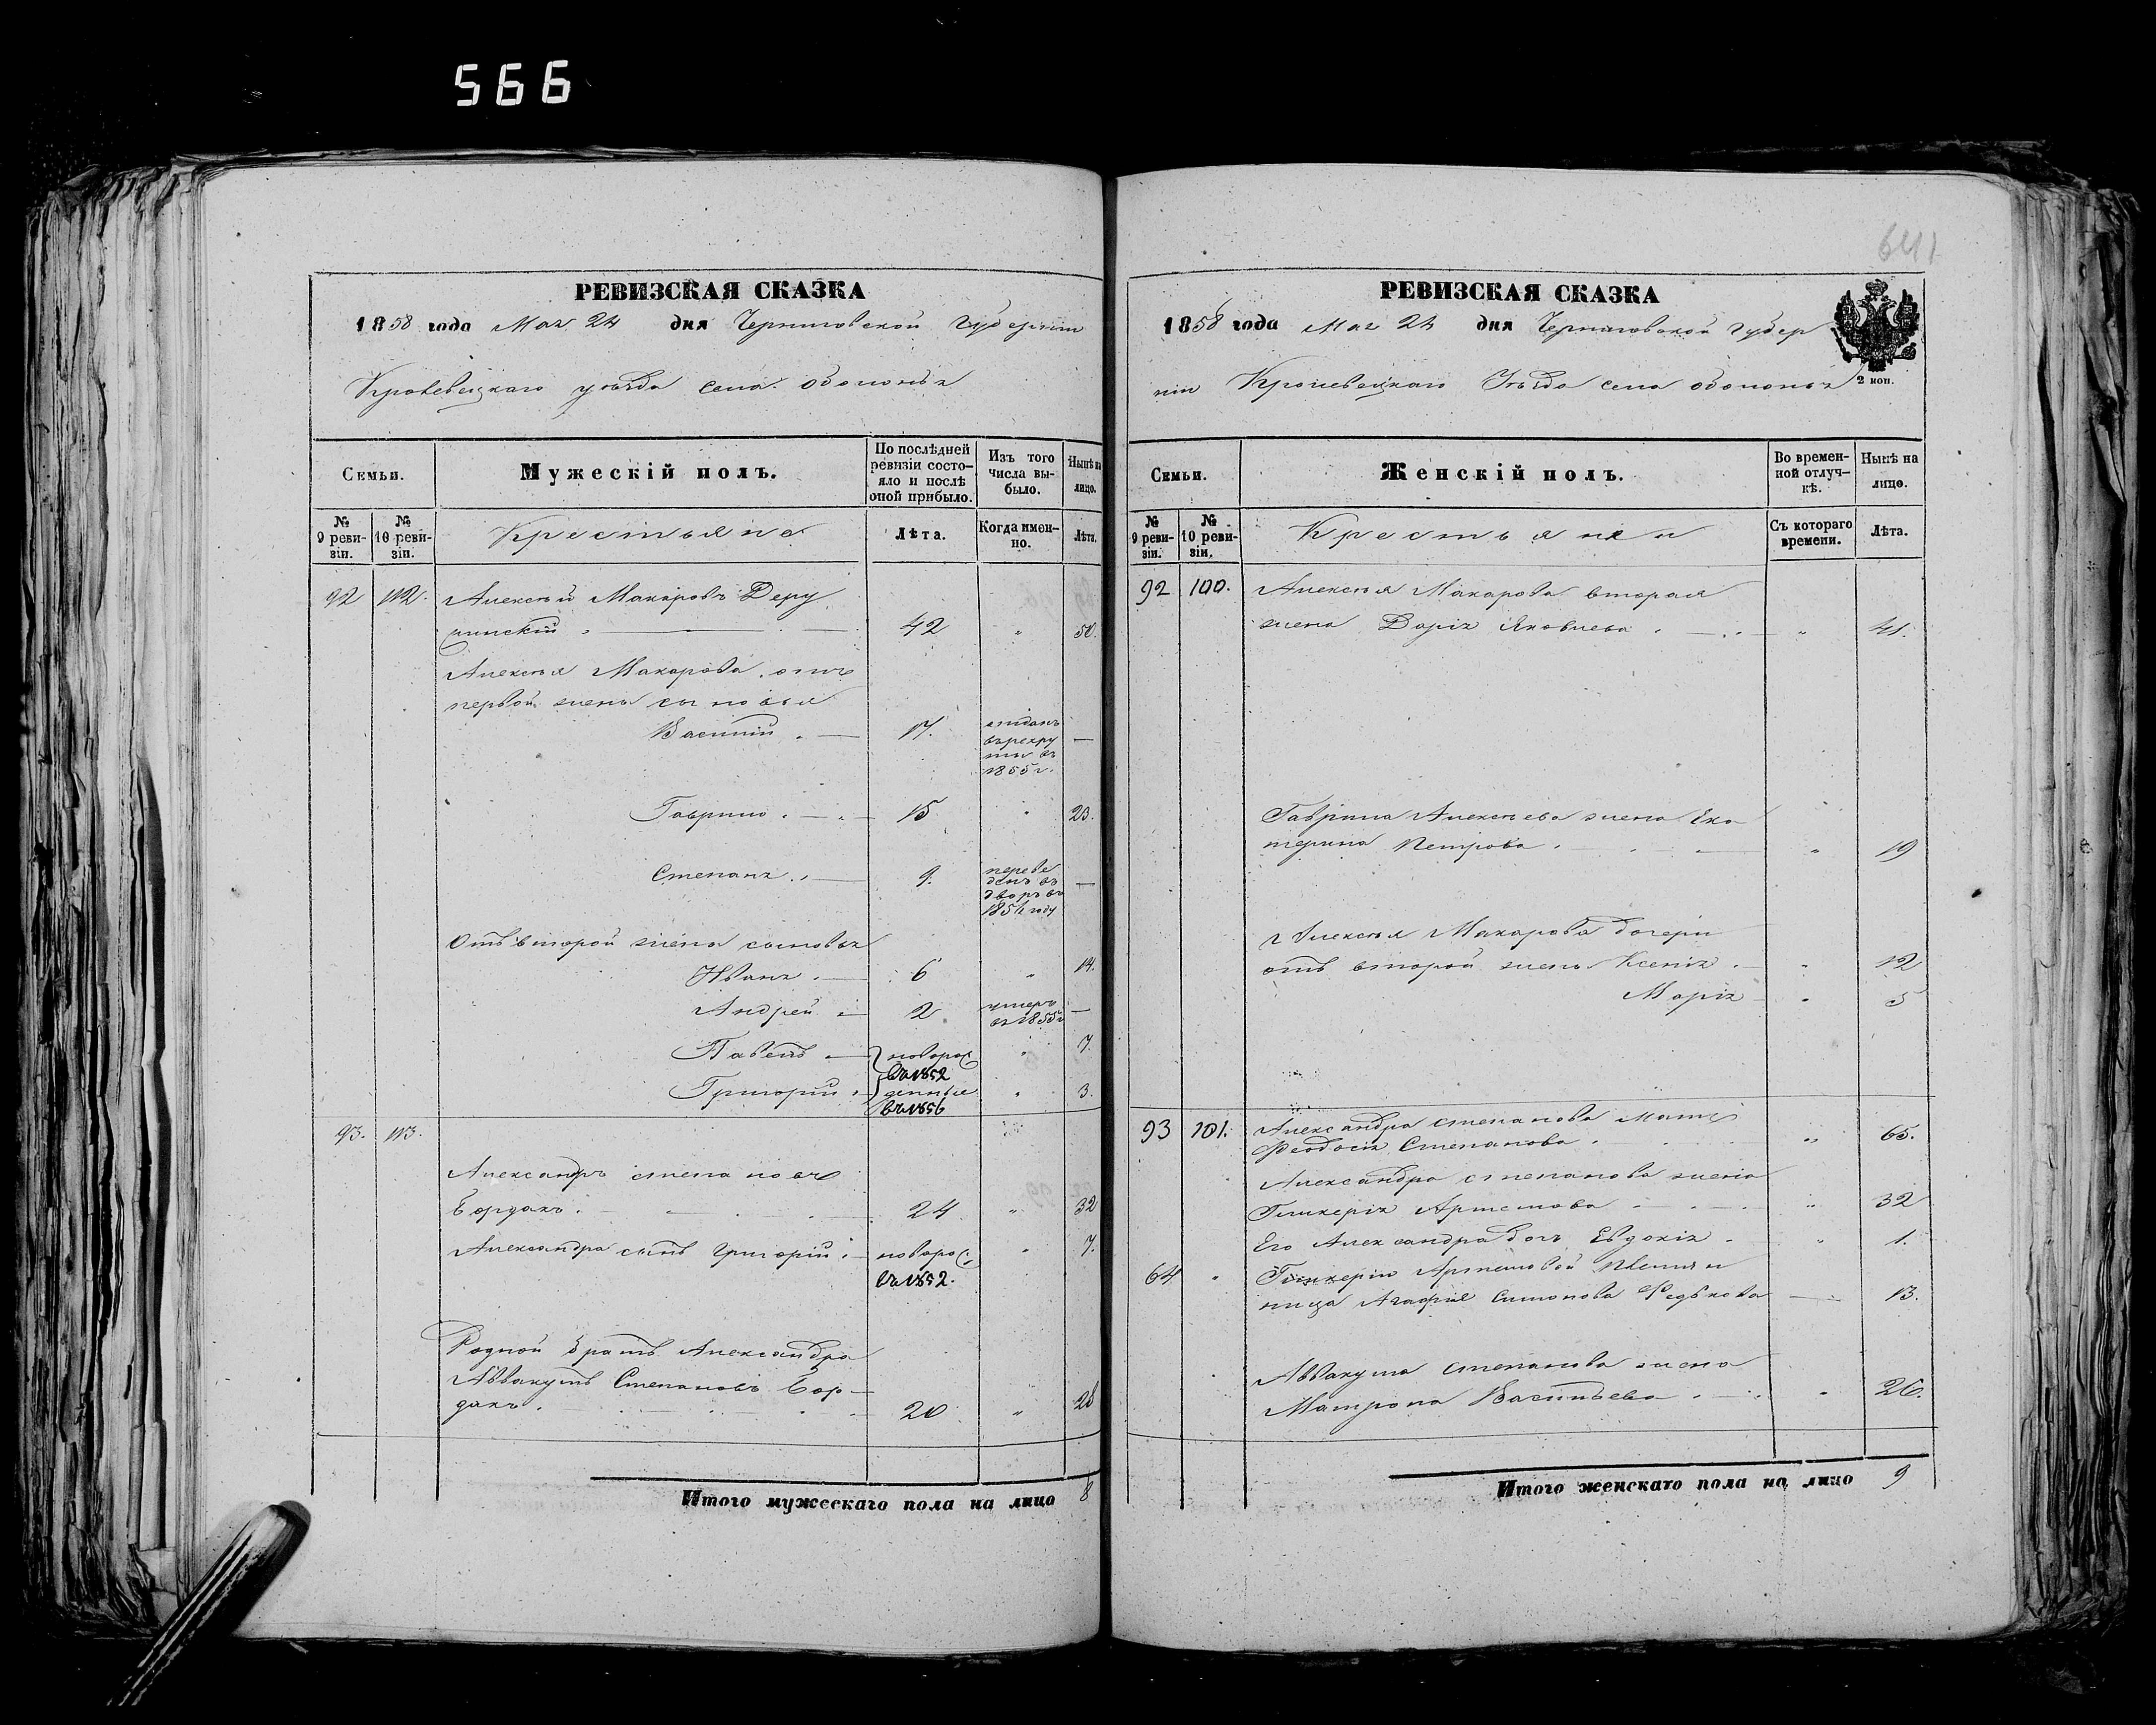 566
641
РЕВИЗСКАЯ СКАЗКА
1858 года Мая 24 дня Черниговской Губерніи
Кролевецкаго уѣзда села Оболонья
Семьи.
Мужескій полъ.
По послѣдней ревизіи состо-
яло и послѣ оной прибыло.
Изъ того числа вы-
было.
Нынѣ на лицо.
№ 9 реви-
зіи.
№ 10 реви-
зіи.
Крестьяне
Лѣта.
Когда имен-
но.
Лѣта.
92 112. Алексѣй Макаровъ Деру
нинскій 42 " 50.
Алексѣя Макарова отъ
первой жены сыновья
Василій 17. отданъ
въ рекру
ты въ
1855 г. —
Гаврило 15 " 23.
Степанъ 9. переве
денъ въ
дворъ въ
185 году —
Отъ второй жены сыновья
Иванъ 6 " 14.
Андрей 2 умеръ
въ 1855 г —
Павелъ новорож " 7.
въ 1852
Григорій денные " 3.
въ 1856
93. 113.
Александръ Степановъ
Бордакъ 24 " 32
Александра сынъ Григорій новорож " 7.
въ 1852.
Родной братъ Александра
Аввакумъ Степановъ Бор-
дакъ 20 " 28
Итого мужескаго пола на лицо 8
РЕВИЗСКАЯ СКАЗКА
1858 года Мая 24 дня Черниговской Губер
ніи Кролевецкаго Уѣзда села Оболонья
2 коп.
Семьи.
Женскій полъ.
Во времен-
ной отлуч-
кѣ.
Нынѣ на лицо.
№ 9 реви-
зіи.
№ 10 реви-
зіи.
Крестьянки
Съ котораго времени.
Лѣта.
92 100. Алексѣя Макарова вторая
жена Дарія Яковлева " 41.
Гаврила Алексѣева жена Ека
терина Петрова " 19
Алексѣя Макарова дочери
отъ второй жены Ксенія " 12
Марія " 5
93 101. Александра Степанова мать
Феодосія Степанова " 65.
Александра Степанова жена
Гликерія Артемова " 32
Его Александра дочь Евдокія " 1.
64 " Гликеріи Артемовой племян
ница Агафія Симонова Федькова — 13.
Аввакума Степанова жена
Матрона Васильева " 26.
Итого женскаго пола на лицо 9